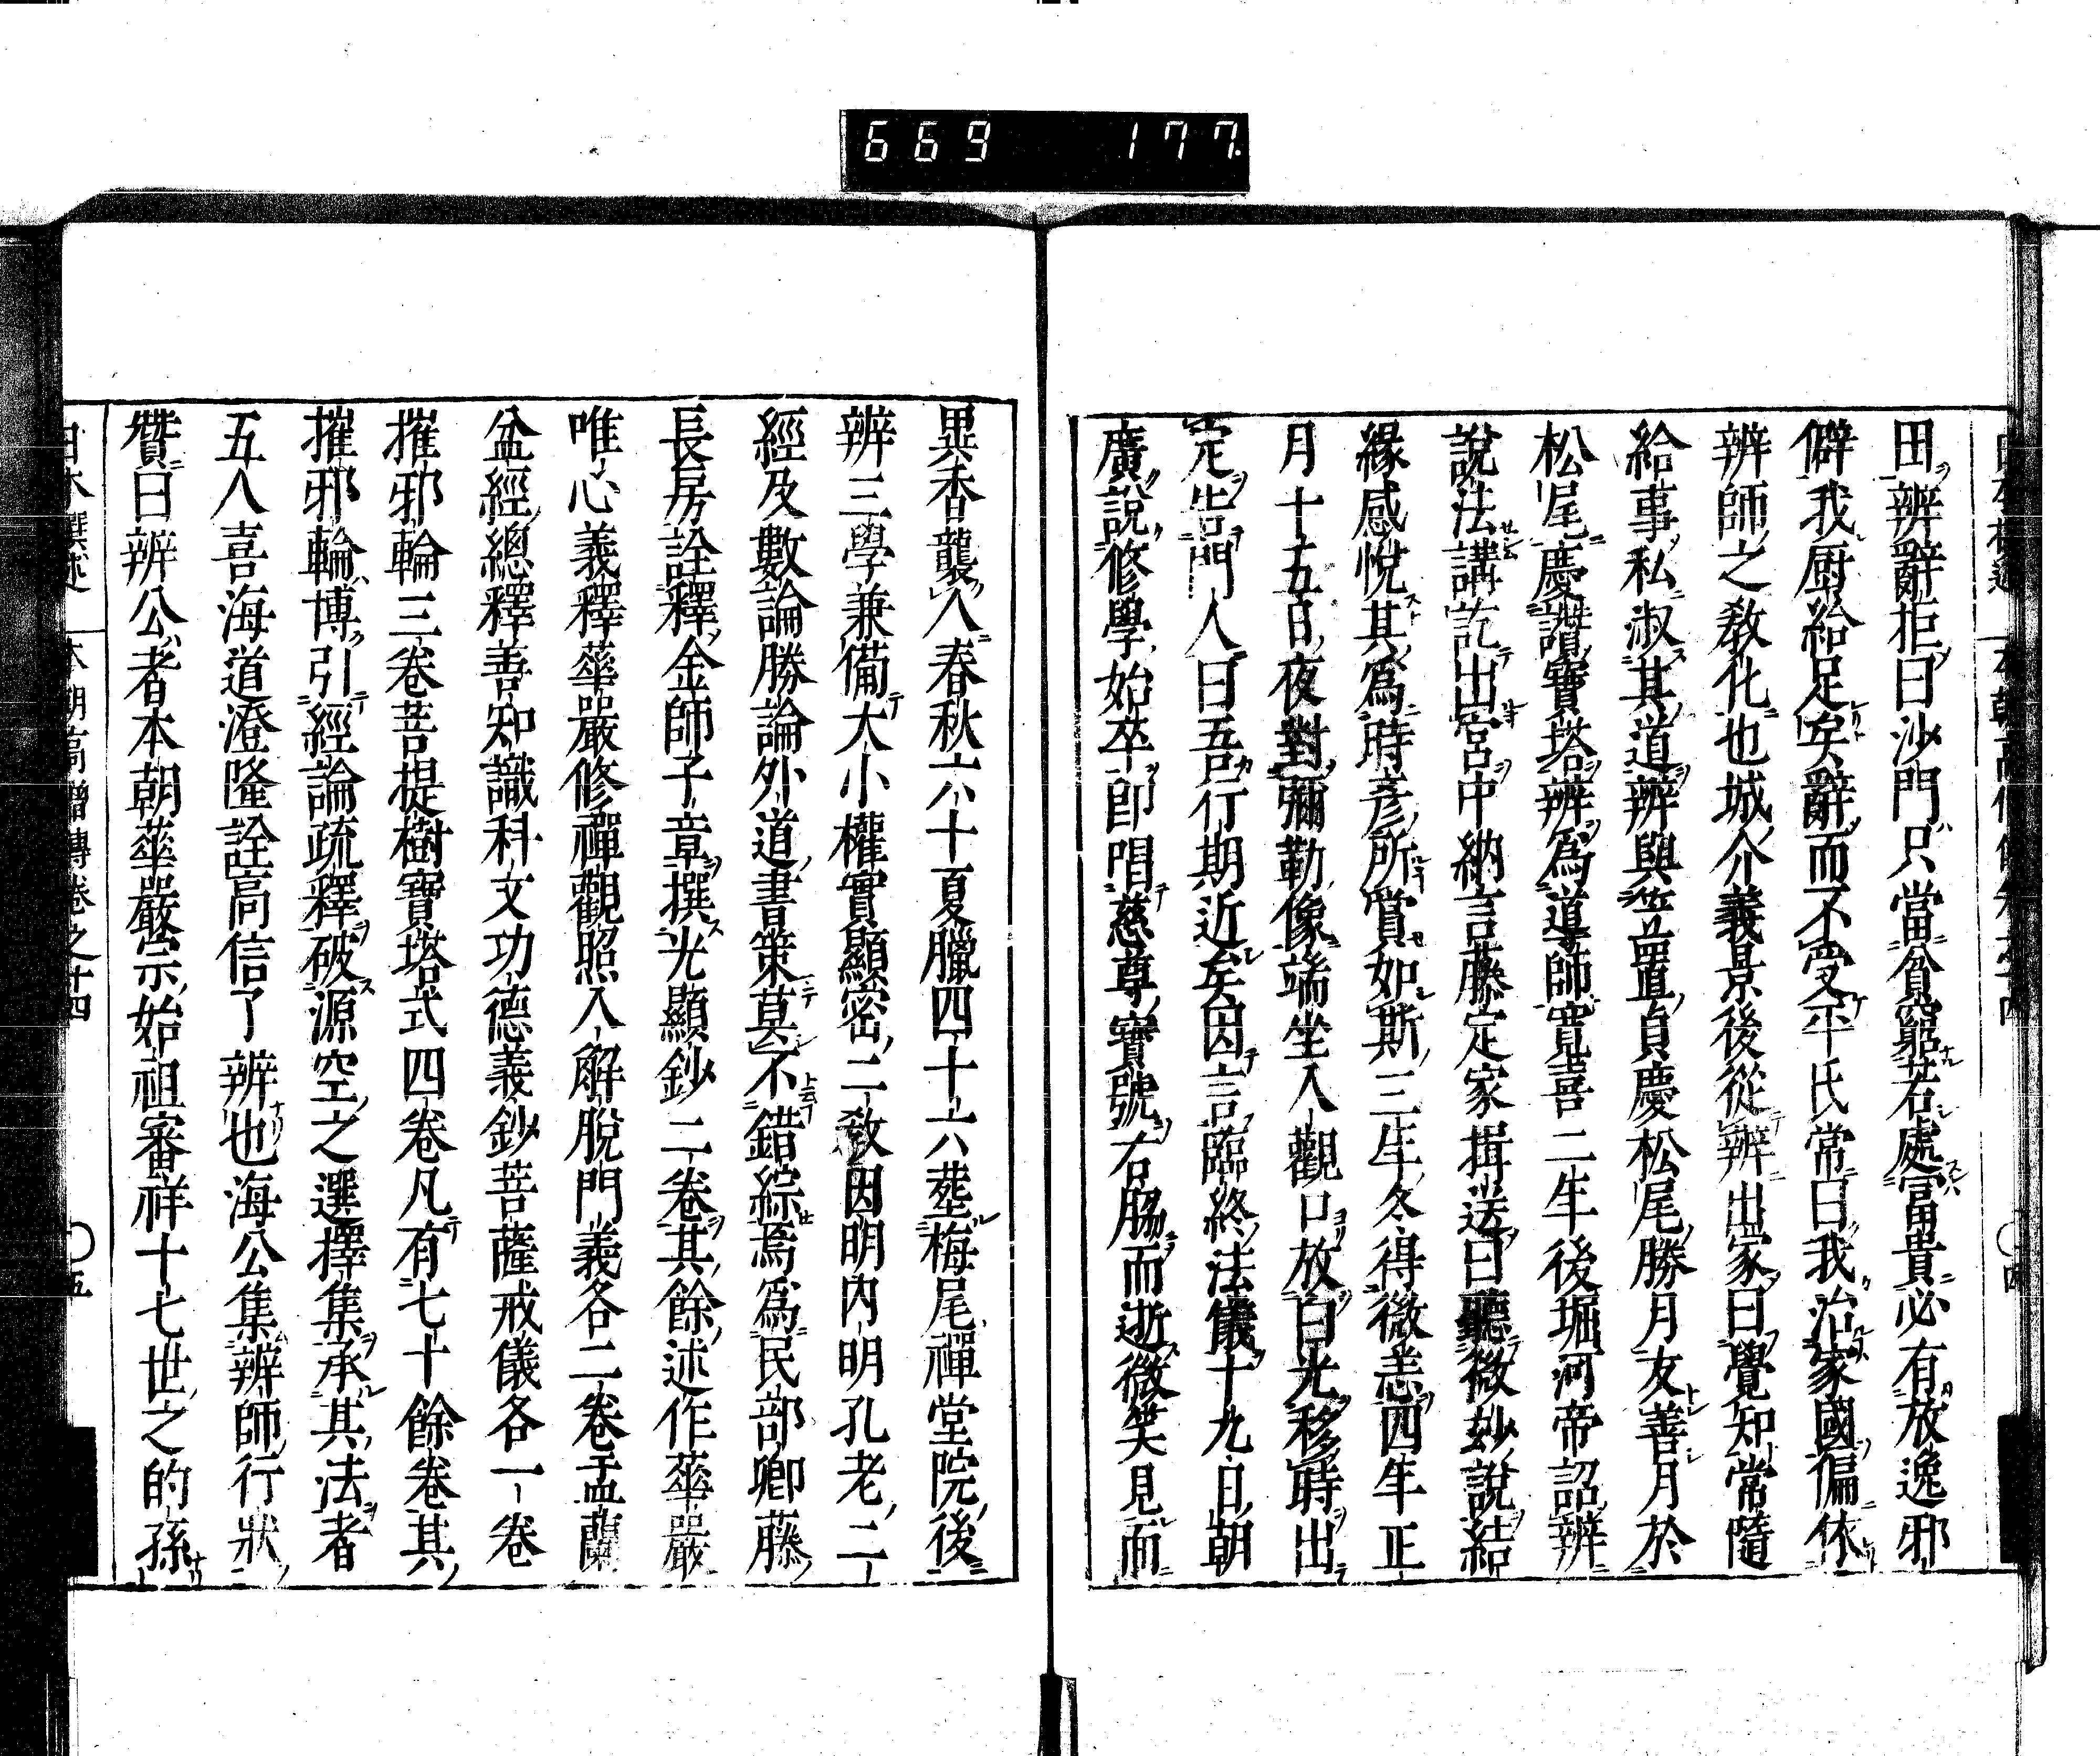 669 177.
田辨辭拒曰沙門只當貧窮若處富貴必有放逸邪
僻我厨給足矣辭而不受平氏常曰我治家國偏休
辨師之教化也城介義景後從辨出家曰覺知常隨
給事私淑其道辨與笠置貞慶松尾勝月友善月於
松尾慶讚寶塔辨爲導師寬喜二年後堀河帝詔辨
說法講訖出宮中納言藤定家揖送曰聽微妙說結
緣感悅其爲時彥所賞如斯三年冬得微恙四年正
月十五日夜對彌勒像端坐入觀口放白光移時出
定告門人曰吾行期近矣因言臨終法儀十九日朝
廣說修學始卒卽唱慈尊寶號右脇而逝微笑見而
異香襲人春秋六十夏臘四十六葬梅尾禪堂院後
辨三學兼備大小權實顯密二教因明內明孔老二
經及數論勝論外道書策莫不錯綜焉爲民部卿藤
長房詮釋金師子章撰光顯鈔二卷其餘述作華嚴
唯心義釋華嚴修禪觀照入解脫門義各二卷盂蘭
盆經總釋善知識科文功德義鈔菩薩戒儀各一卷
摧邪輪三卷菩提樹寶塔式四卷凡有七十餘卷其
摧邪輪博引經論疏釋破源空之選擇集承其法者
五人喜海道澄隆詮高信了辨也海公集辨師行狀
贊曰辨公者本朝華嚴宗始祖審祥十七世之的孫
日本撰述 本朝高僧傳卷之十四 〇五